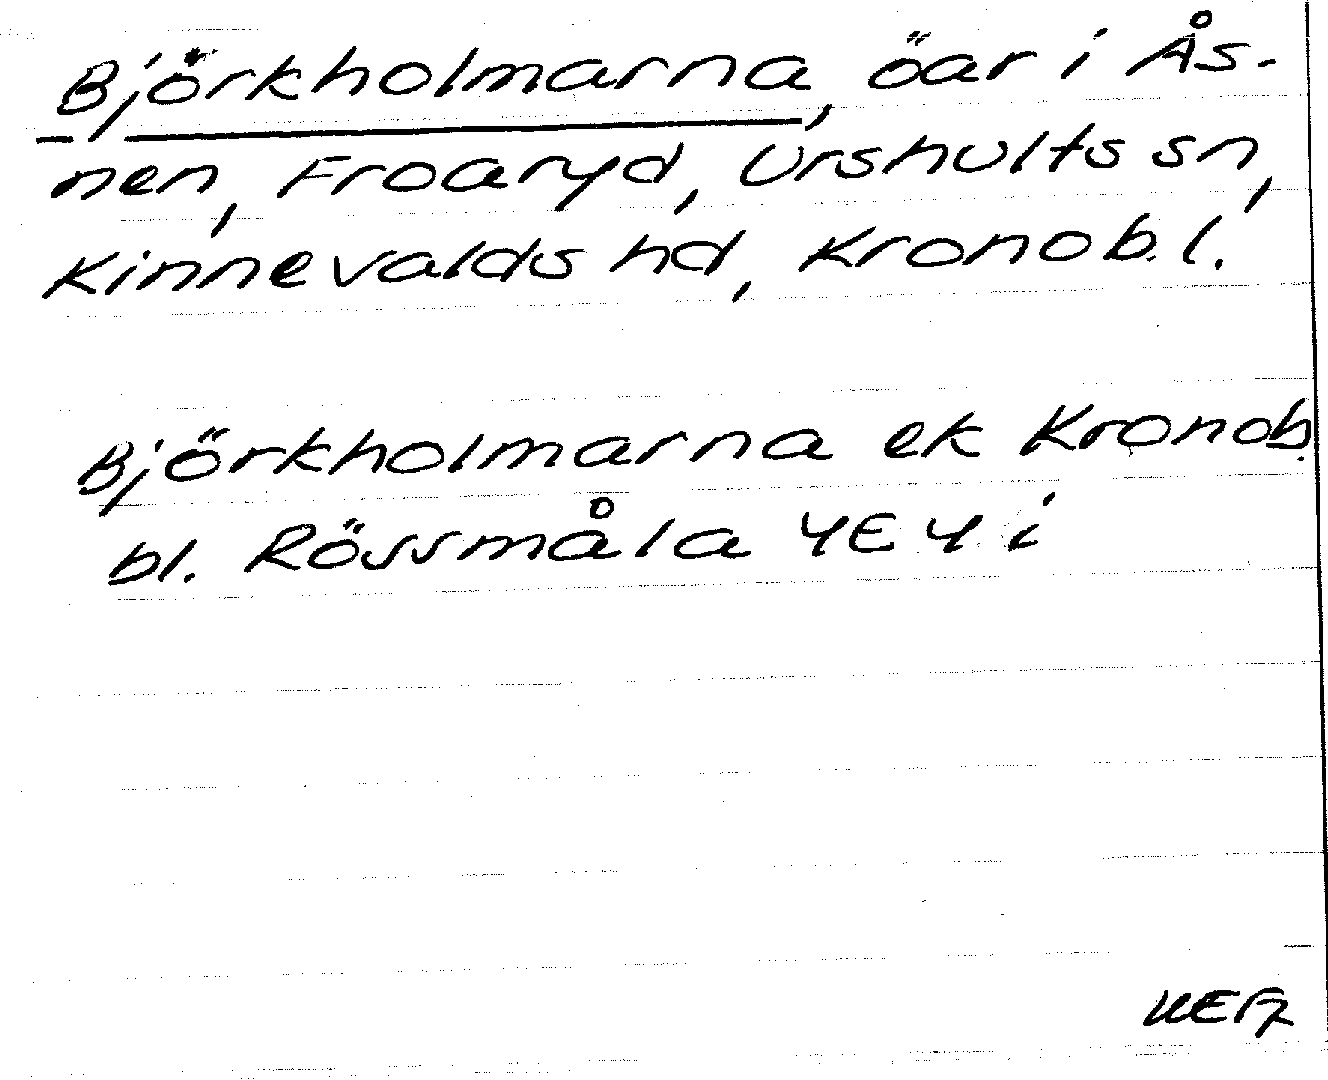 Björkholmarna, öar i Ås-
nen, Froaryd, Urshults sn,
Kinnevalds hd, Kronob. l.
Björkholmarna ek Kronob.
bl. Rössmåla 4E 4 i